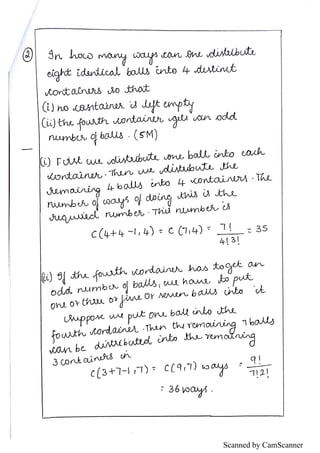 ② In how many ways can one distribute
eight identical balls into 4 distinct
containers so that
(i) no container is left empty
(ii) the fourth container gets an odd
number of balls. (5M)
(i) First we distribute one ball into each
container. Then we distribute the
remaining 4 balls into 4 containers. The
number of ways of doing this is the
required number. This number is
C(4+4-1,4) = C(7,4) = 7!/4!3! = 35
(ii) If the fourth container has to get an
odd number of balls, we have to put
one or three or five or seven balls into it
Suppose we put one ball into the
fourth container. Then the remaining 7 balls
can be distributed into the remaining
3 containers in
C(3+7-1,7) = C(9,7) ways = 9!/7!2!
= 36 ways.
Scanned by CamScanner